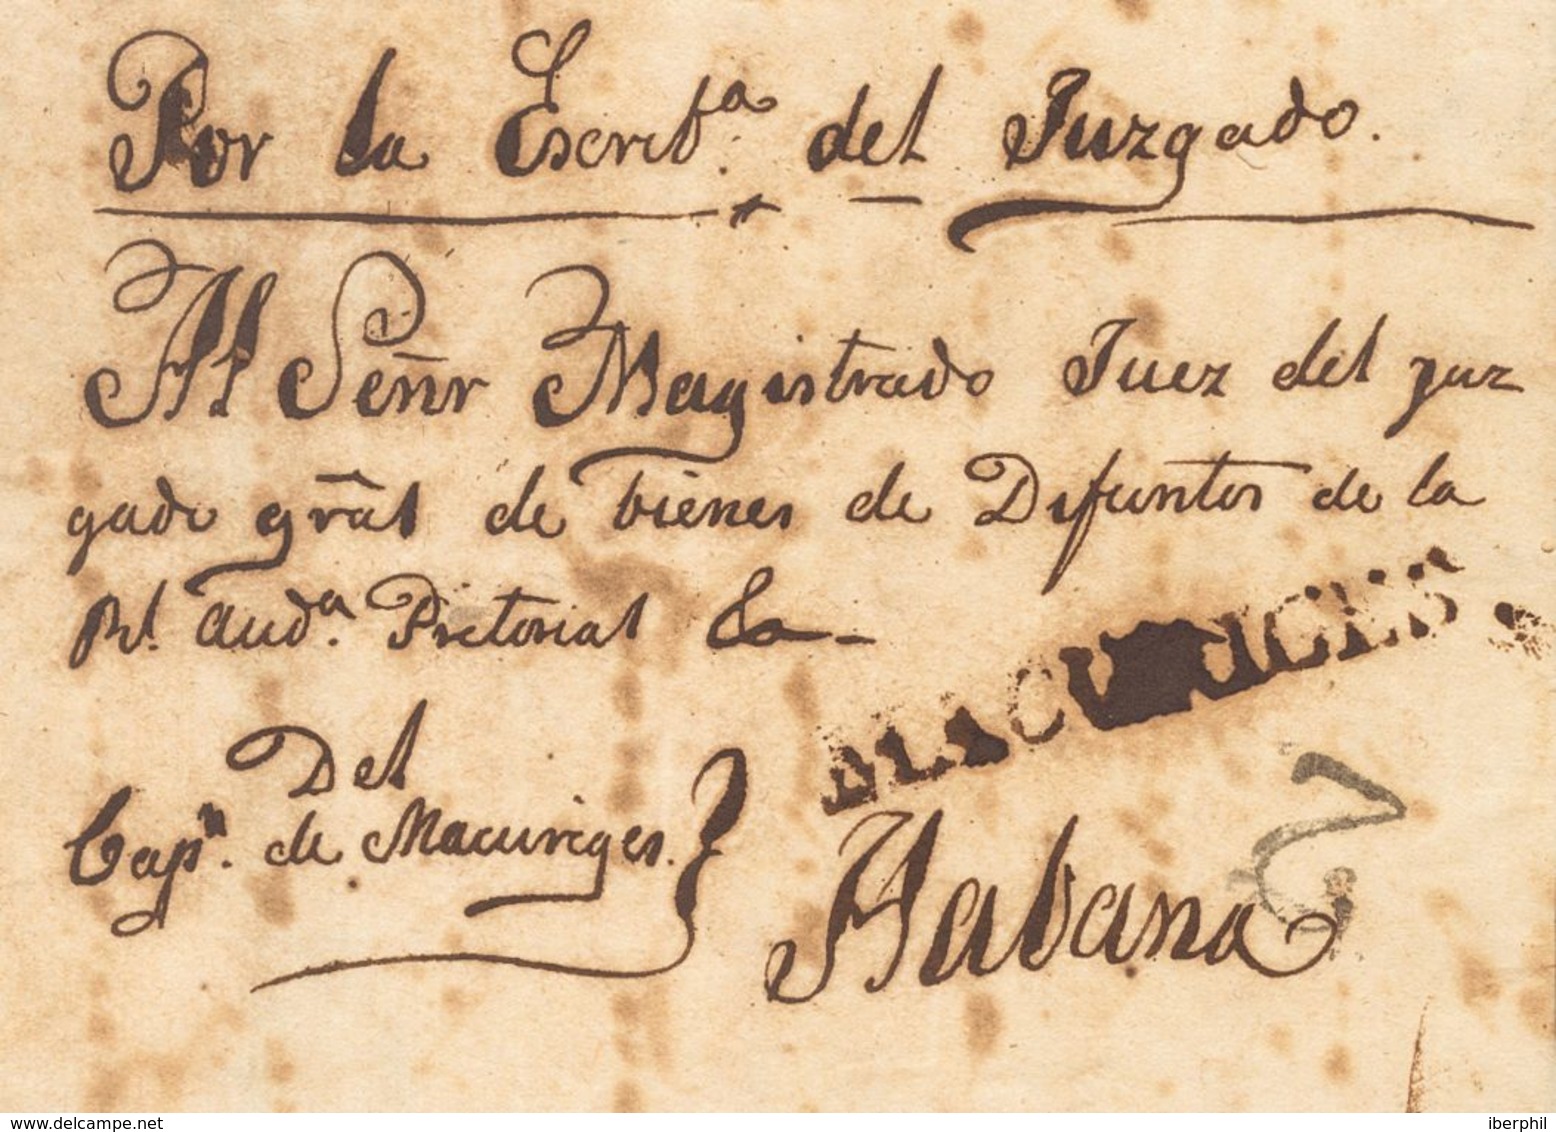 Por la Escrib.ª del Juzgado.
Al Señr Magistrado Juez del juz
gado grãl de bienes de Difuntos de la
Rl. Aud.ª Pretorial &a
Del
Cap.n de Macuriges.
MACURIGES.
Habana
delcampe.net
iberphil